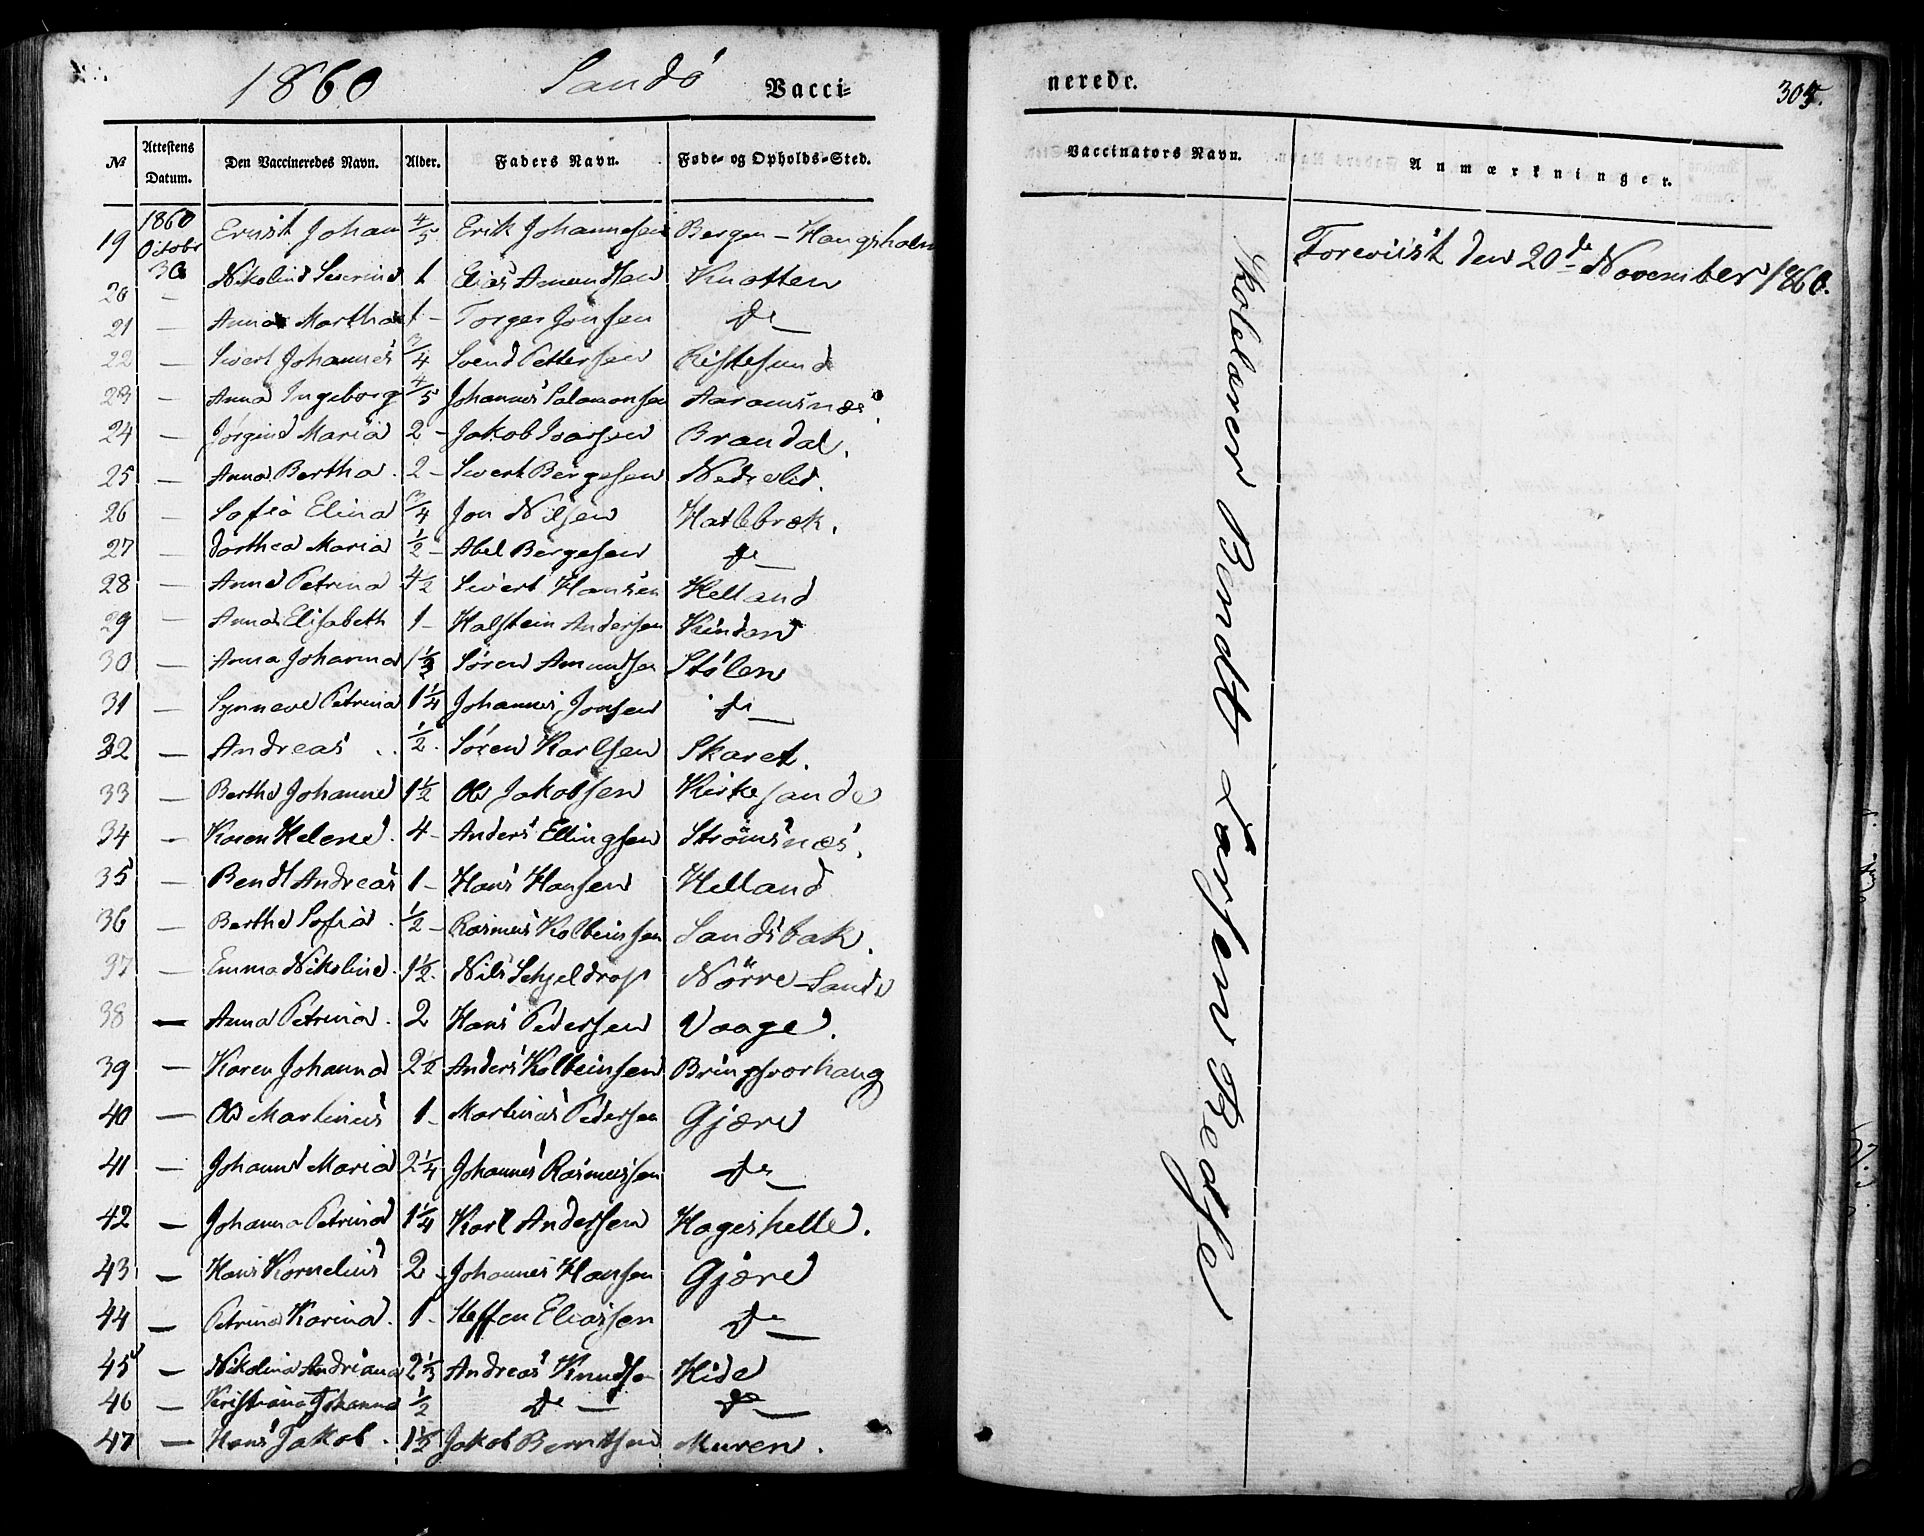 1860 Sandö Vacci=
№ Attestens Datum. Den Vaccineredes Navn. Alder. Faders Navn. Føde- og Opholds-Sted.
19 1860 Octobr 30 Ernst Johan 4/5 Erik Johannesen Bergen - Haugsholm
20 — Nikoline Severine 1 Elias Amundsen Knotten
21 — Anna Martha 1 - Torger Jonsen do —
22 — Sivert Johannes 3/4 Svend Pettersen Ristesund
23 — Anna Ingeborg 4/5 Johannes Salamonsen Aaramsnæs.
24 — Jørgine Maria 2 - Jakob Ivarsen Brandal.
25 — Anna Bertha. 2 - Sivert Bergesen Nedrelid.
26 — Sofia Elina 3/4 Jon Nilsen Hatlebræk.
27 — Dorthea Maria 1/2 - Abel Bergesen do —
28 — Anne Petrina 4 1/2 Sivert Hansen Helland
29 — Anna Elisabeth 1 - Halstein Andersen Kinden
30 — Anna Johanna 1 1/2 Sören Amundsen Stölen
31 — Synneve Petrina 1 1/4 Johannes Jonsen do —
32 — Andreas 1/2. Sören Karlsen Skaret.
33 — Berthe Johanne 1 1/2 Ole Jakobsen Kirkesande
34 — Karen Helene. 4 - Anders Ellingsen Strömsnæs.
35 — Bendt Andreas 1 - Hans Hansen Helland
36 — Berthe Sofia. 1/2 - Rasmus Kolbeinsen Sandsbak.
37 — Emma Nikoline. 1 1/2. Nils Schjeldrop Nörre-Sande
38 — Anna Petrina. 2 Hans Pedersen Vaage.
39 — Karen Johanna 2 1/2 Anders Kolbeinsen Bringsvorhaug
40 — Ole Martinus 1 - Martinus Pedersen Gjære
41 — Johanne Maria 2 1/4 Johannes Rasmussen do —
42 — Johanna Petrina 1 1/4 Karl Andersen Hageskelle.
43 — Hans Kornelius 2 - Johannes Hansen Gjære
44 — Petrina Karina. 1 - Steffen Eliassen do —
45 — Nikolina Andriana 2 1/3 Andreas Knudsen Hide
46 — Kristiana Johanna 1/2 do — do —
47 — Hans Jakob. 1 1/2 Jakob Berntsen Muren.
nerede. 305.
Vaccinators Navn. Anmærkninger.
Foreviist den 20de November 1860.
Kolelærer Bendt Larsen Redse